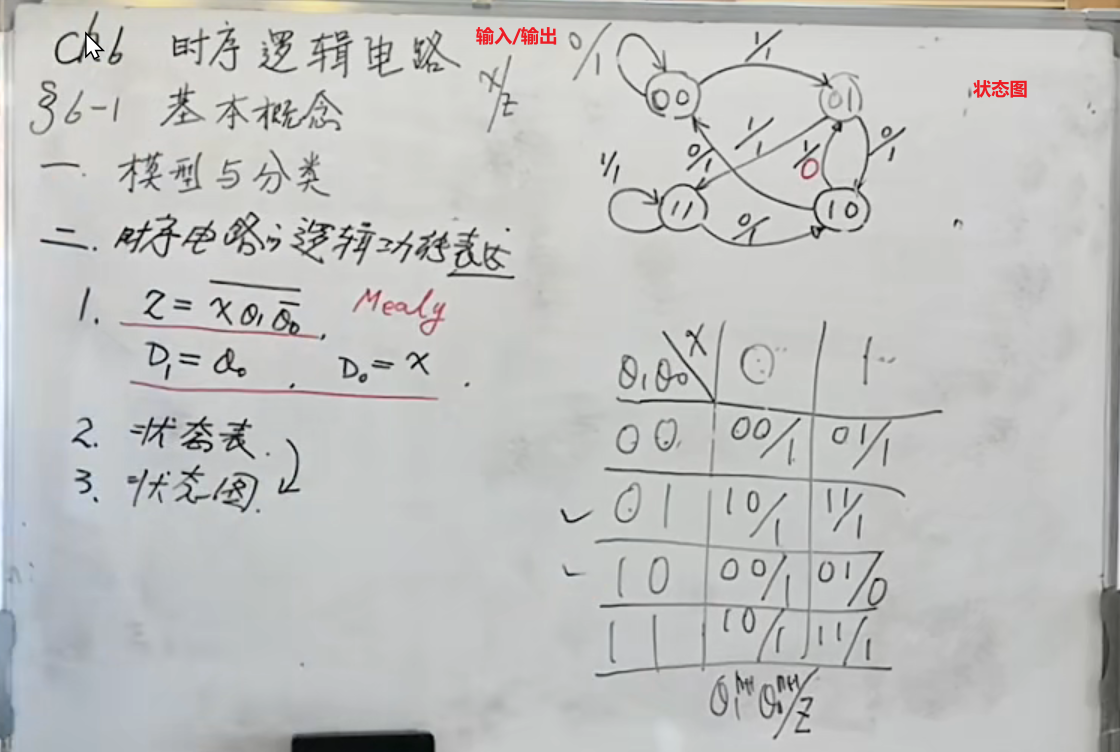 Ch6 时序逻辑电路
§6-1 基本概念
一. 模型与分类
二. 时序电路的逻辑功能表达
1. Z = \overline{X Q₁ \overline{Q₀}}. Mealy
D₁ = Q₀. D₀ = X.
2. 状态表.
3. 状态图.
输入/输出
X/Z
状态图
0/1 1/1
00 01
0/1 1/1 1/0 0/1
1/1
11 0/1 10
Q₁Q₀ X 0 1
00 00/1 01/1
01 10/1 11/1
10 00/1 01/0
11 10/1 11/1
Q₁ⁿ⁺¹Q₀ⁿ⁺¹/Z